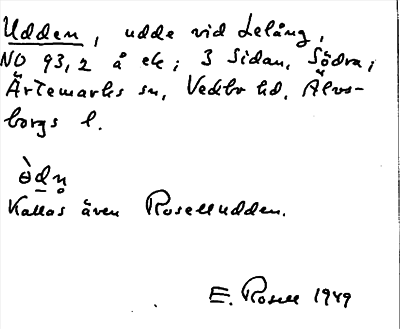 Udden, udde vid Lelång,
NO 93,2 å ek; 3 Sidan, Södra,
Ärtemarks sn, Vedbo hd, Älvs-
borgs l.
Kallas även Roselludden.
E. Rosell 1949